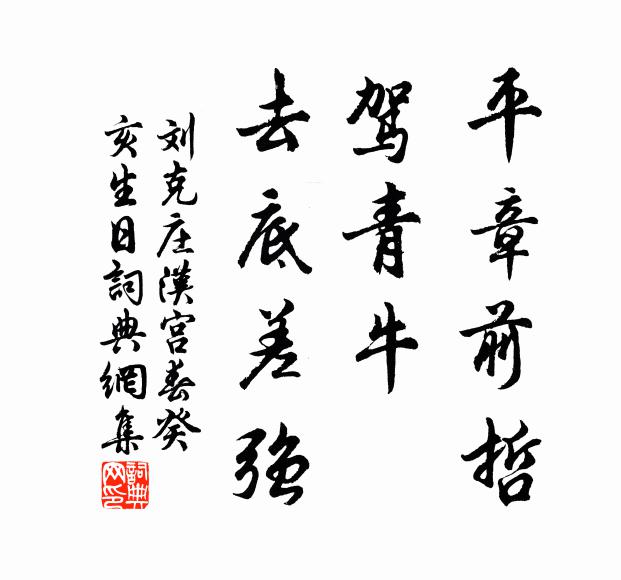 平章前哲
驾青牛
去底差强
刘克庄漢宫春癸
亥生日詞典網集
詞典网印